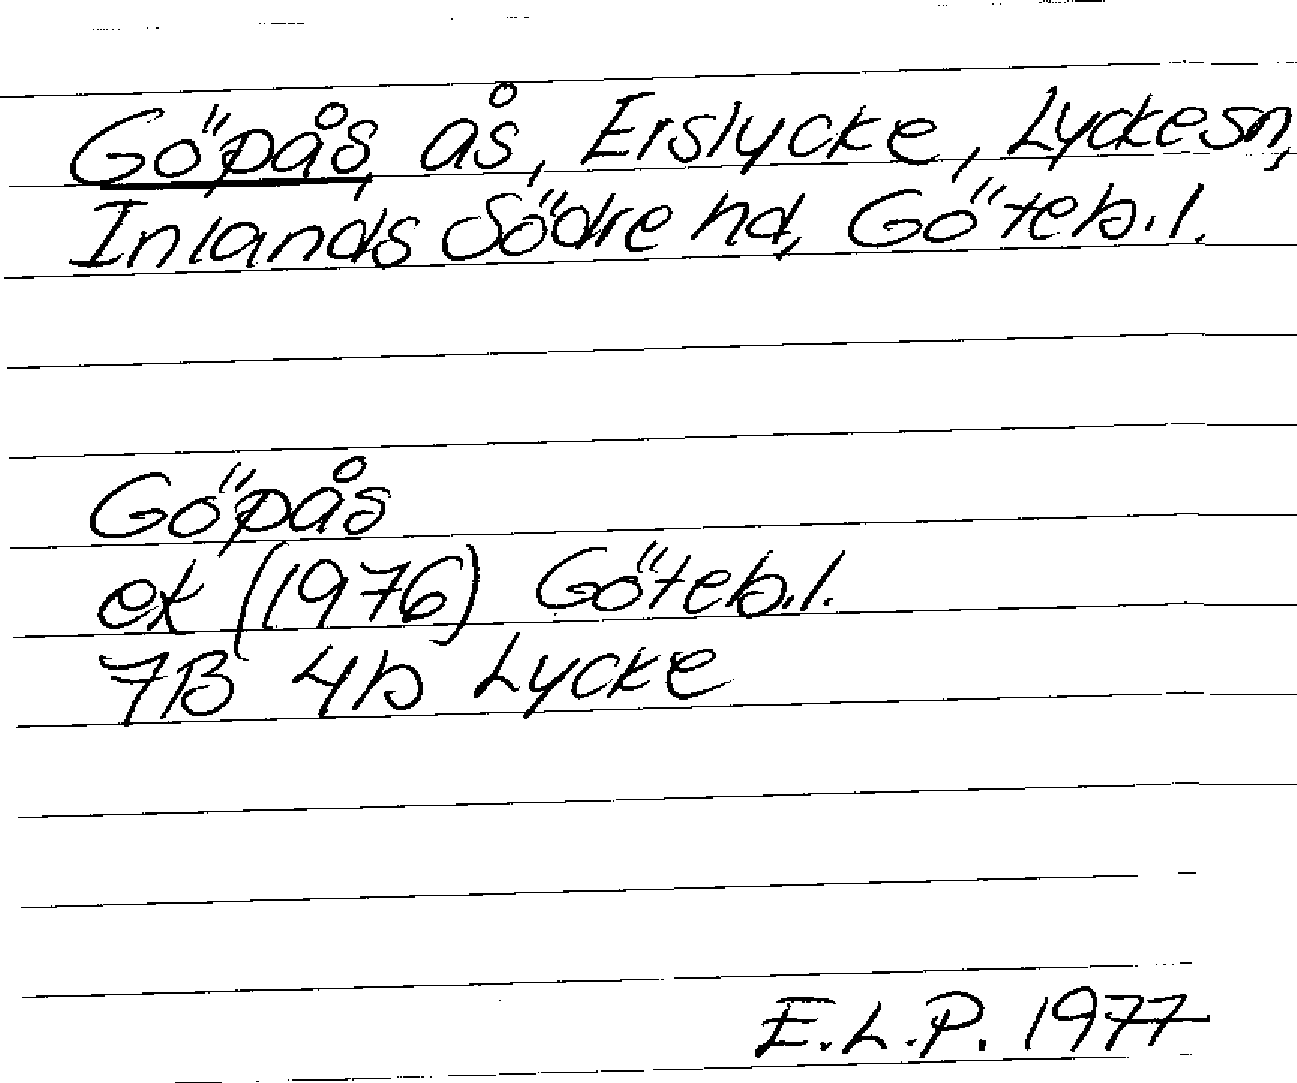 Göpås, ås, Erslycke, Lyckesn,
Inlands Södre hd, Göteb.l.
Göpås
ek (1976) Göteb.l.
7B 4b Lycke
E.L.P. 1977